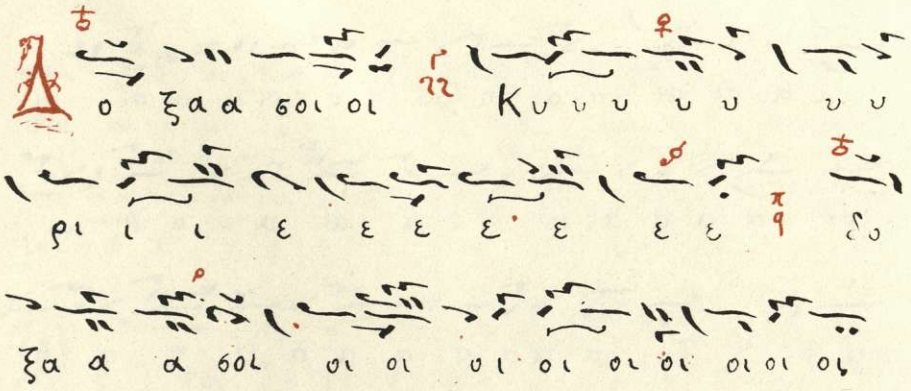 Δ ο ξα α σοι οι Κυ υ υ υ υ υ υ
ρι ι ι ε ε ε ε ε ε ε δο
ξα α α σοι οι οι οι οι οι οι οι οι οι